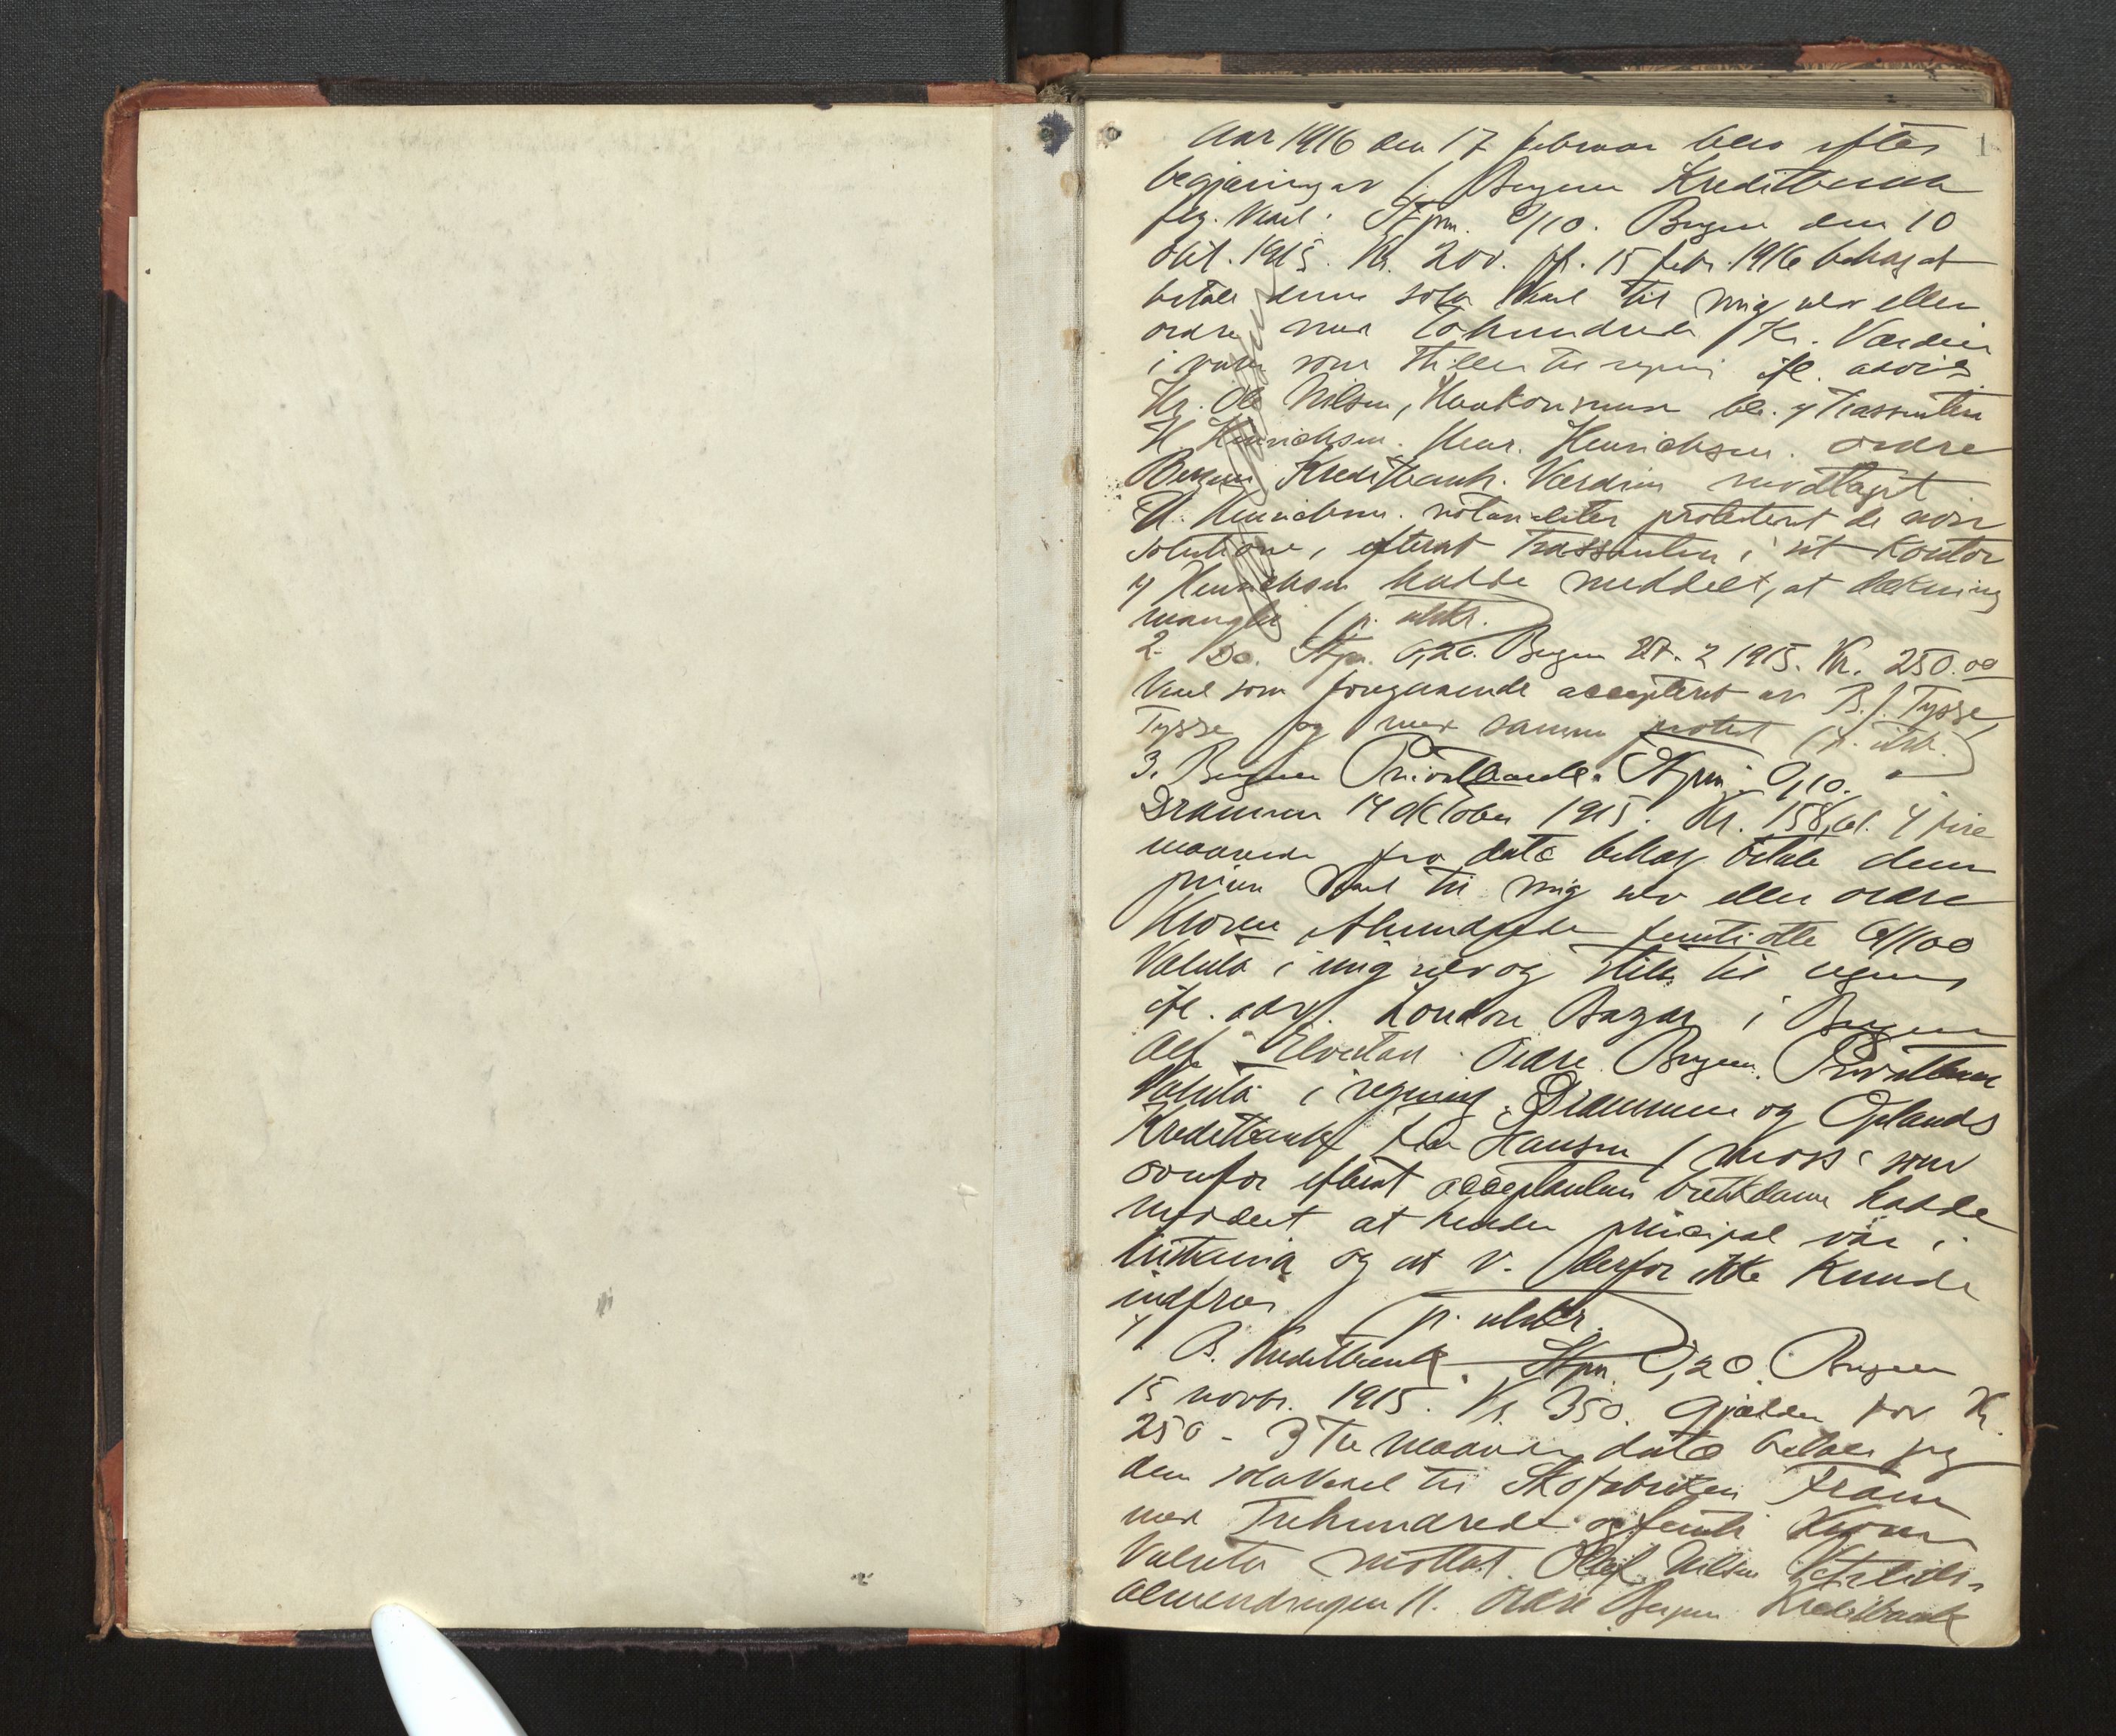 1
Aar 1916 den 17 februar blev efter
begjæring av Bergens Kreditbank
flg. Vexel: Stpm. 0/10. Bergen den 10
okt. 1915. Kr. 200. pr. 15 febr. 1916 behag at
betale denne sola Vexel til mig selv eller
ordre med Tohundrede Kr. Værdien
i varer som stilles til regning ifl. advis
Hr. Ole Nilsen, Haakon
H. Henrichsen. Henr. Henrichsen. ordre
Bergens Kreditbank. Værdien modtaget
H. Henrichsen. notarialiter protesteret de non
solutione, efterat Trassenten i sit kontor
Henrichsen hadde meddelt, at dækning
mangler
2. Do. Stpm. 0,20. Bergen 27. 2 1915. Kr. 250.00
Vexel som foregaaende accepteret av B. J. Tysse,
Tysse og med samme protest
3. Bergens Privatbank. Stpm. 0,10.
Drammen 14 oktober 1915. Kr. 158, 4 fire
maaneder fra dato behag betale denne
prima Vexel til mig selv eller ordre
Kroner Ethundrede femti otte /100
Valuta i mig selv og stiles til regning
ifl. London Bazar i Bergen
Alf Elvestad. Ordre Bergens Privatbank
Valuta i regning. Drammen og Oplands
Kreditbank Hansen / Moss som
ovenfor efterat acceptantens butikdame hadde
meddelt at hendes principal var i
Kristiania og at v. derfor ikke kunde
indfries
4
B. Kreditbank. Stpm. 0,20. Bergen
15 novbr. 1915. Kr. 350. Gjælder for Kr.
250 - 3 Tre maaneder dato betaler jeg
denne solaVexel til Skofabriken Fram
med Trehundrede og femti Kroner
Valuta mottat. Olaf Nilsen
almendingen 11. Ordre Bergens Kreditbank